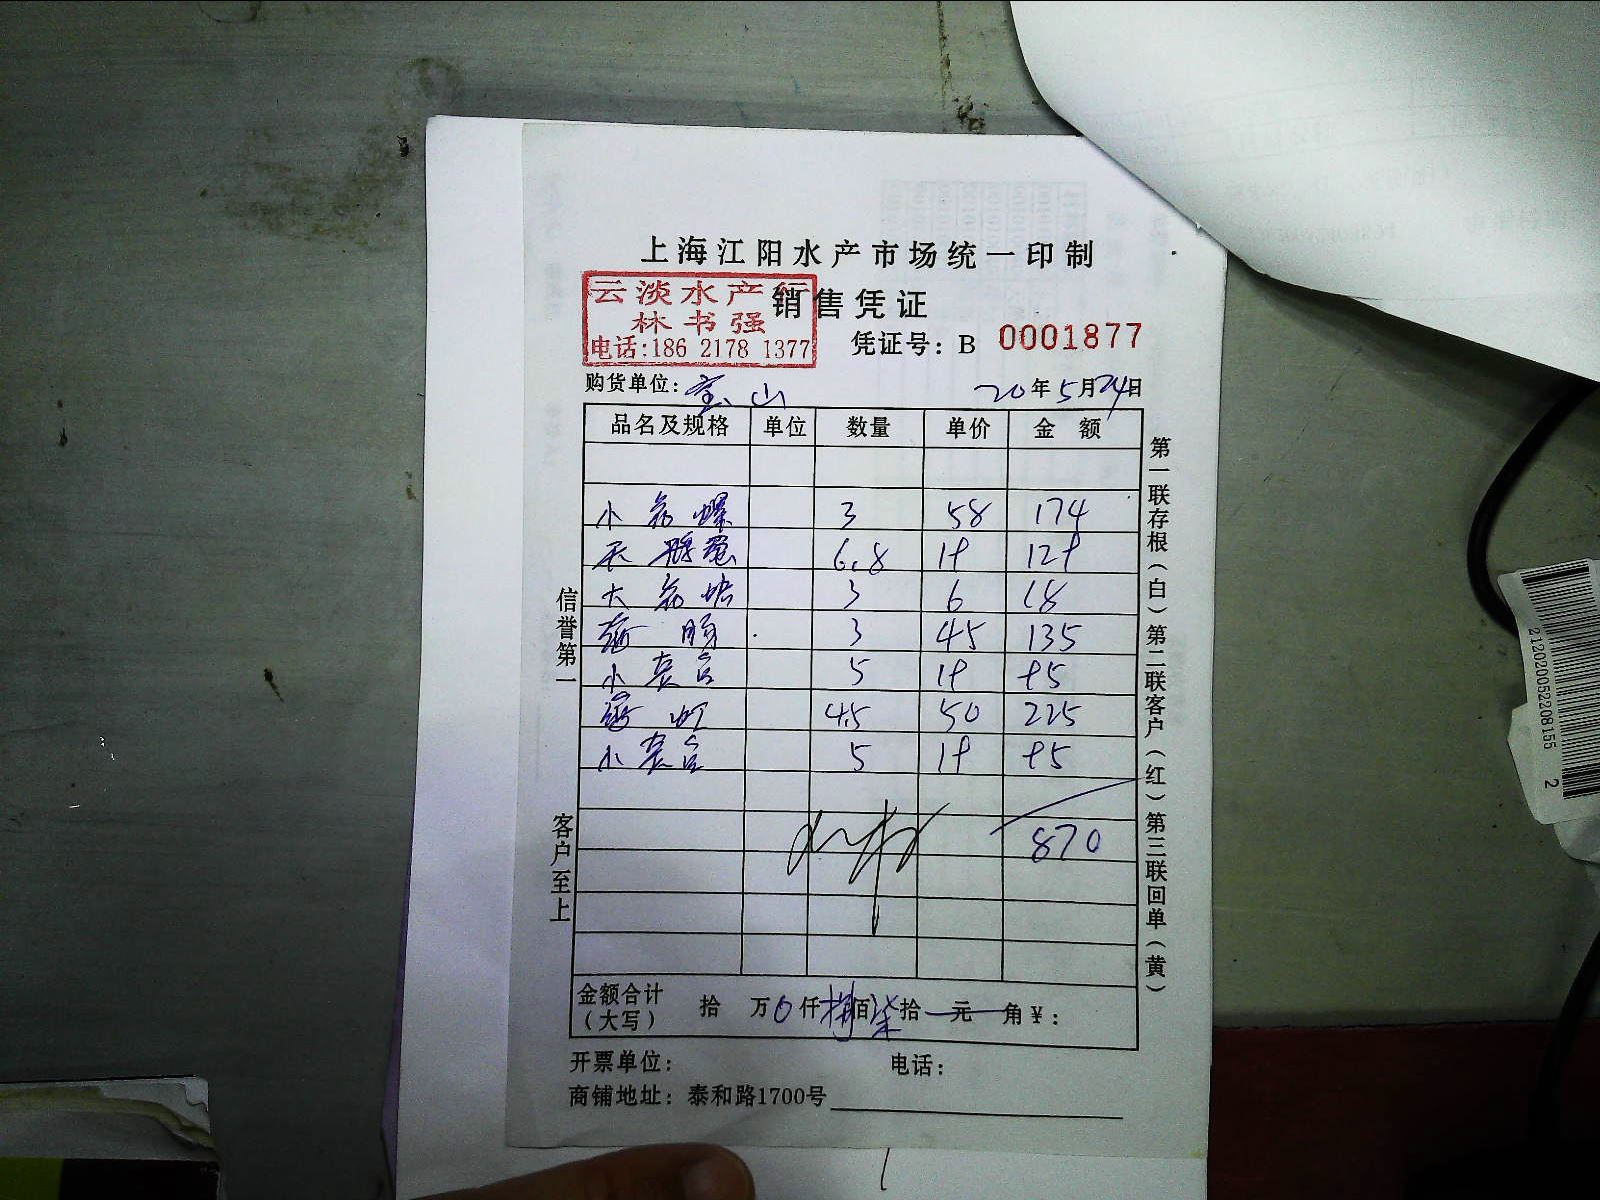 上海江阳水产市场统一印制
云淡水产行
林书强
电话:186 2178 1377
销售凭证
凭证号: B 0001877
购货单位: 宝山 20年5月24日
品名及规格 单位 数量 单价 金额
小花螺 3 58 174
天鹅蛋 6.8 19 129
大花蛤 3 6 18
海肠 3 45 135
小 5 19 95
4.5 50 225
小 5 19 95
870
金额合计(大写) 拾 万 0 仟 捌 佰 柒 拾 元 角 ¥:
开票单位: 电话:
商铺地址: 泰和路1700号
信誉第一
客户至上
第一联存根(白)第二联客户(红)第三联回单(黄)
2120200522081552